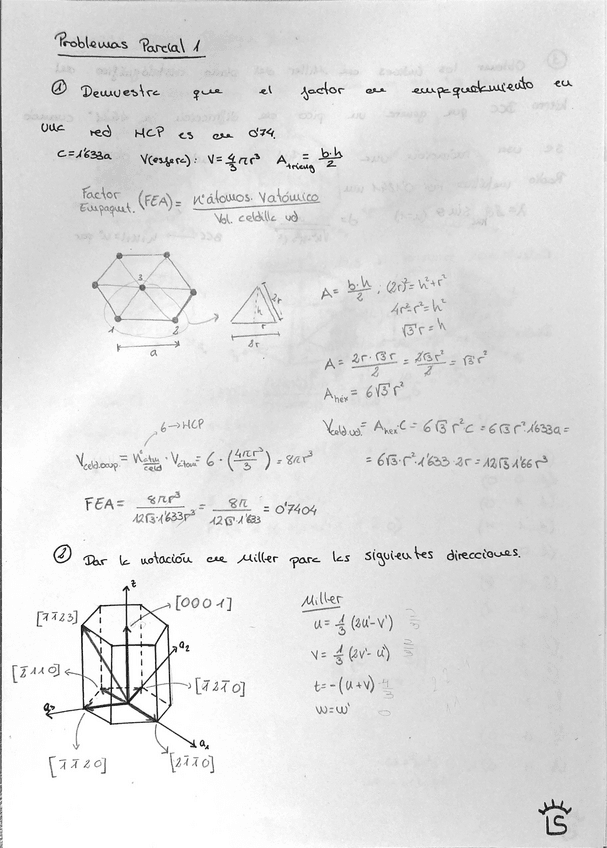 Problemas Parcial 1
① Demuestra que el factor de empaquetamiento en
una red HCP es de 0'74.
C=1'633a V(esfera): V=4/3 πr³ A triáng = b·h/2
Factor Empaquet. (FEA) = nºátomos. Vatómico / Vol. celdilla ud.
3
1 2
a
2r
h
r
2r
A = b·h/2 ; (2r)² = h²+r²
4r²-r² = h²
√3 r = h
A = 2r·√3r/2 = 2√3r²/2 = √3 r²
A hex = 6√3 r²
6→HCP
Vceld.ud. = A hex·C = 6√3 r² C = 6√3 r² 1'633a =
= 6√3·r²·1'633·2r = 12√3 1'66 r³
Vceld.ocup = nºátm/celd · Vátomo = 6·(4πr³/3) = 8πr³
FEA = 8πr³/12√3·1'633r³ = 8π/12√3·1'633 = 0'7404
② Dar la notación de Miller para las siguientes direcciones.
z
[0 0 0 1]
[1̅ 1̅ 2 3]
a₂
[2̅ 1 1 0]
[1̅ 2 1̅ 0]
a₃
a₁
[1̅ 1̅ 2 0]
[2 1̅ 1̅ 0]
Miller
u = 1/3 (2u'-v')
v = 1/3 (2v'-u')
t = -(u+v)
w = w'
LS